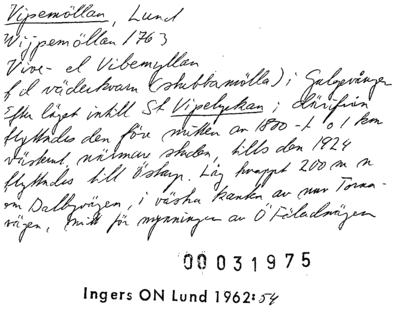 Vipemöllan, Lund
Wijpemöllan 1763
Vive- el Vibemyllan
f d väderkvarn (stubbamölla) i Galgevången
Efter läget intill St Vipelyckan; därifrån
flyttades den före mitten av 1800-t 0 1 km
västerut, närmare staden, tills den 1924
flyttades till Östarp. Låg knappt 200 m n
om Dalbyvägen, i västra kanten av nuv Torna-
vägen, mitt för mynningen av Ö Fäladsvägen
00031975
Ingers ON Lund 1962:54